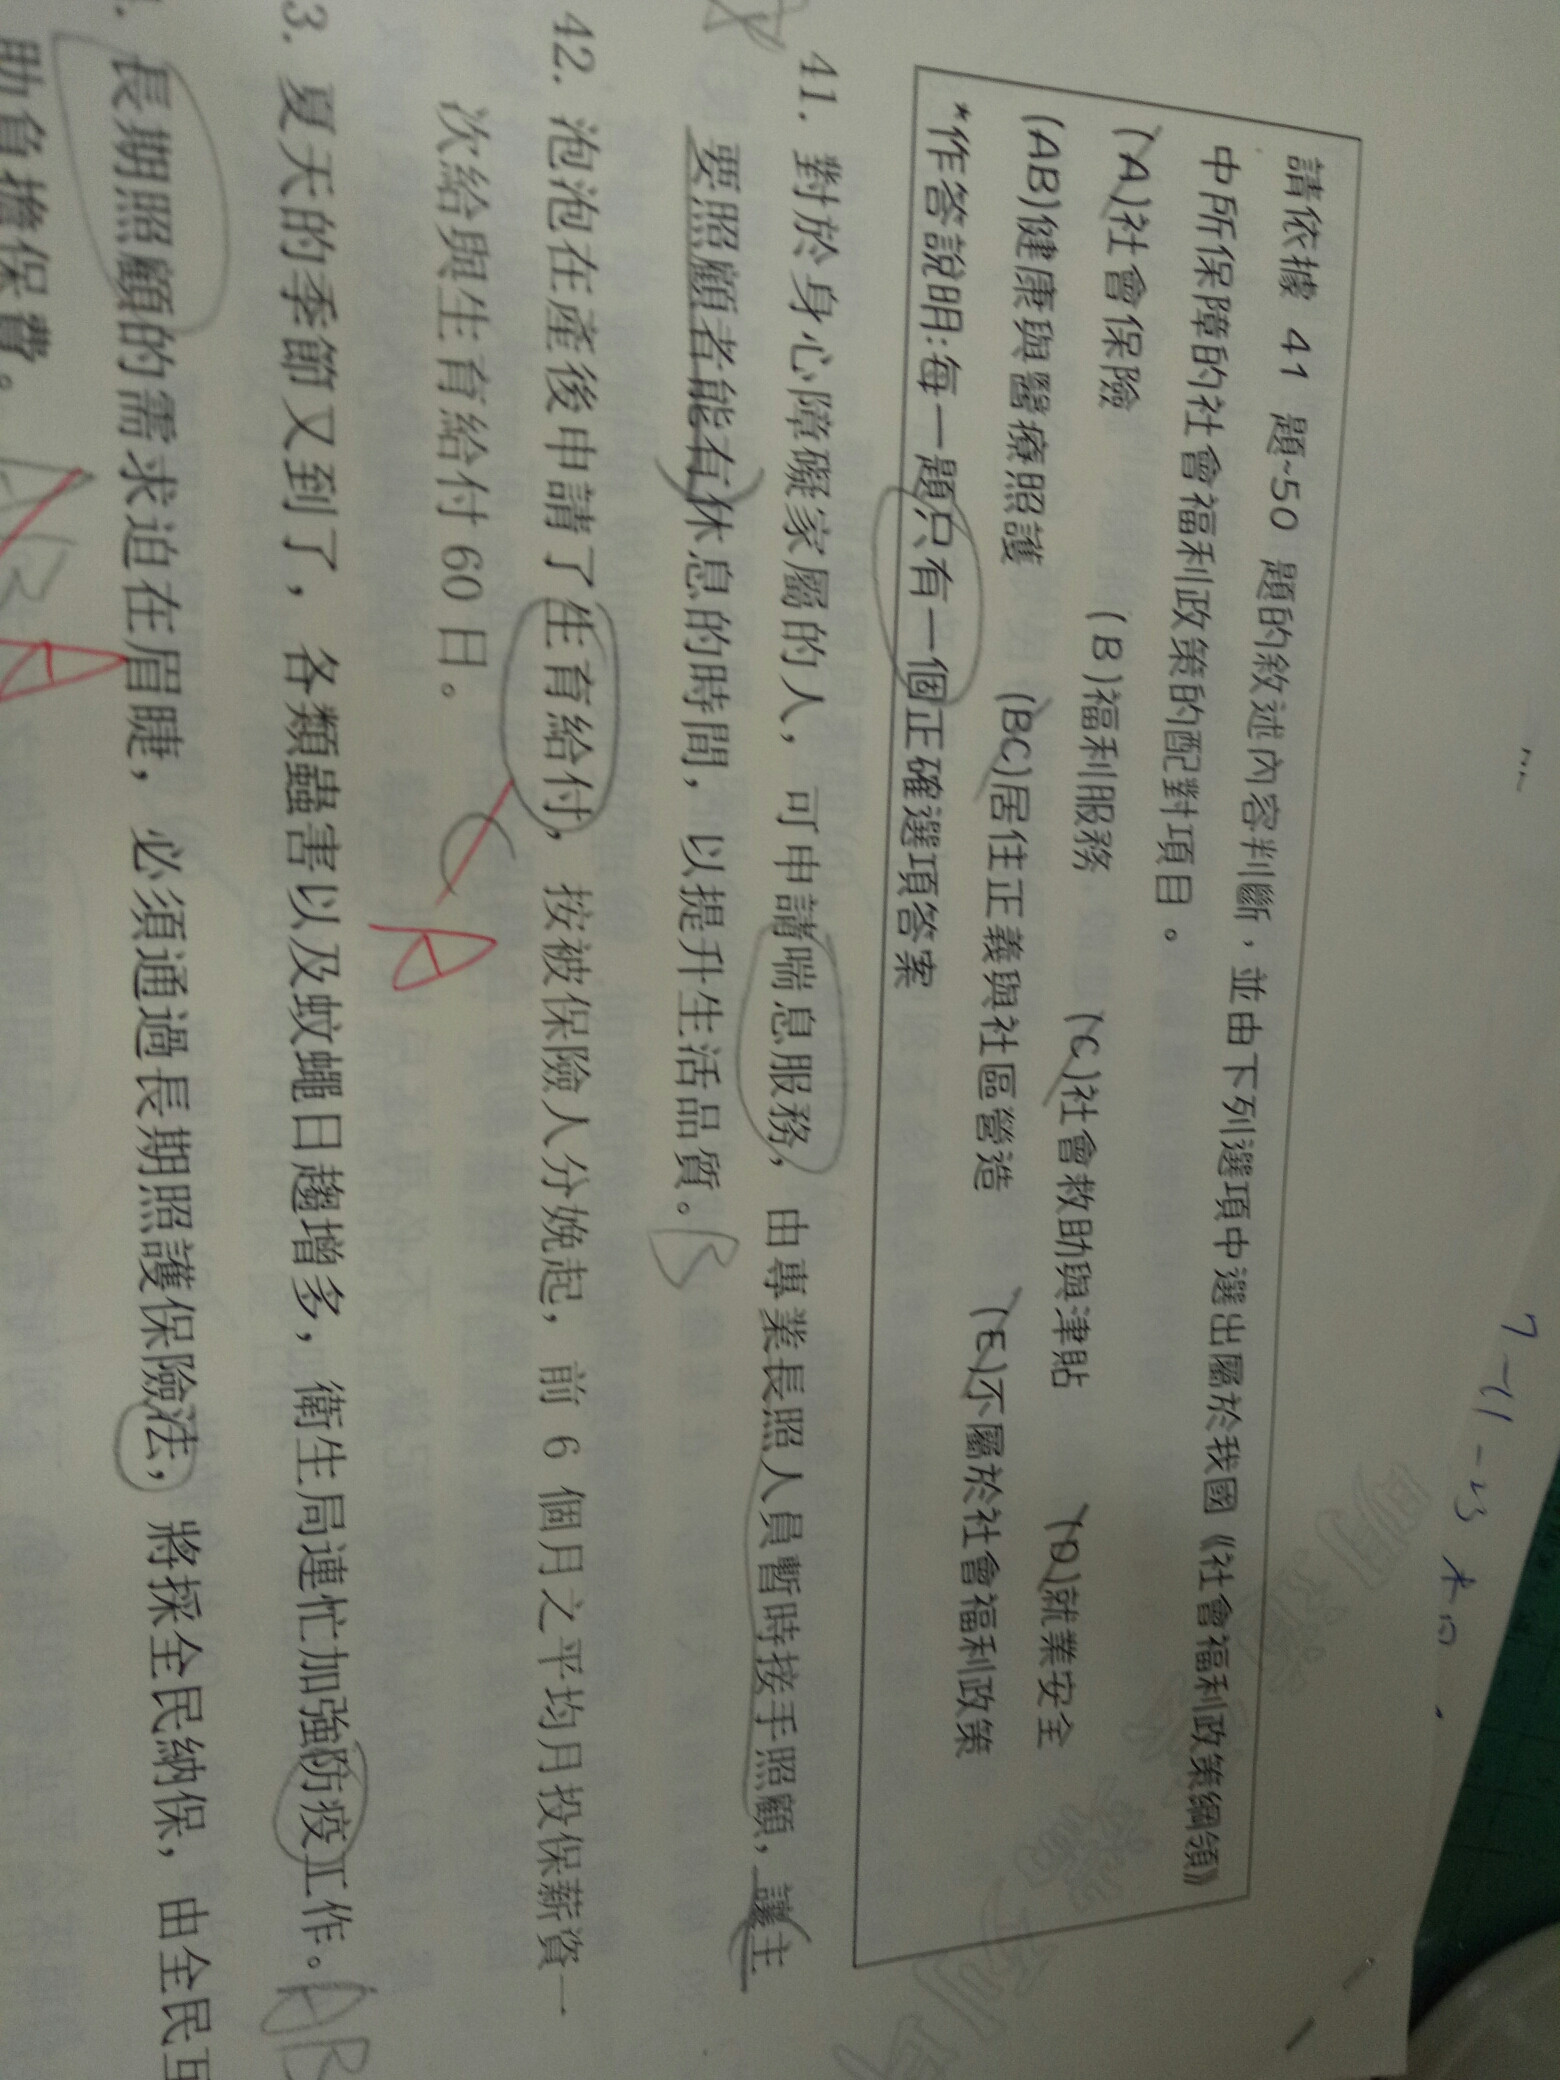 7-11-23 本回.
請依據 41 題~50 題的敘述內容判斷，並由下列選項中選出屬於我國《社會福利政策綱領》
中所保障的社會福利政策的配對項目。
(A)社會保險 (B)福利服務 (C)社會救助與津貼 (D)就業安全
(AB)健康與醫療照護 (BC)居住正義與社區營造 (E)不屬於社會福利政策
*作答說明:每一題只有一個正確選項答案
41. 對於身心障礙家屬的人，可申請喘息服務，由專業長照人員暫時接手照顧，讓主
要照顧者能有休息的時間，以提升生活品質。B
42. 泡泡在產後申請了生育給付，按被保險人分娩起，前 6 個月之平均月投保薪資一
次給與生育給付 60 日。 C A
3. 夏天的季節又到了，各類蟲害以及蚊蠅日趨增多，衛生局連忙加強防疫工作。AB
長期照顧的需求迫在眉睫，必須通過長期照護保險法，將採全民納保，由全民互
助負擔保費。 AB A